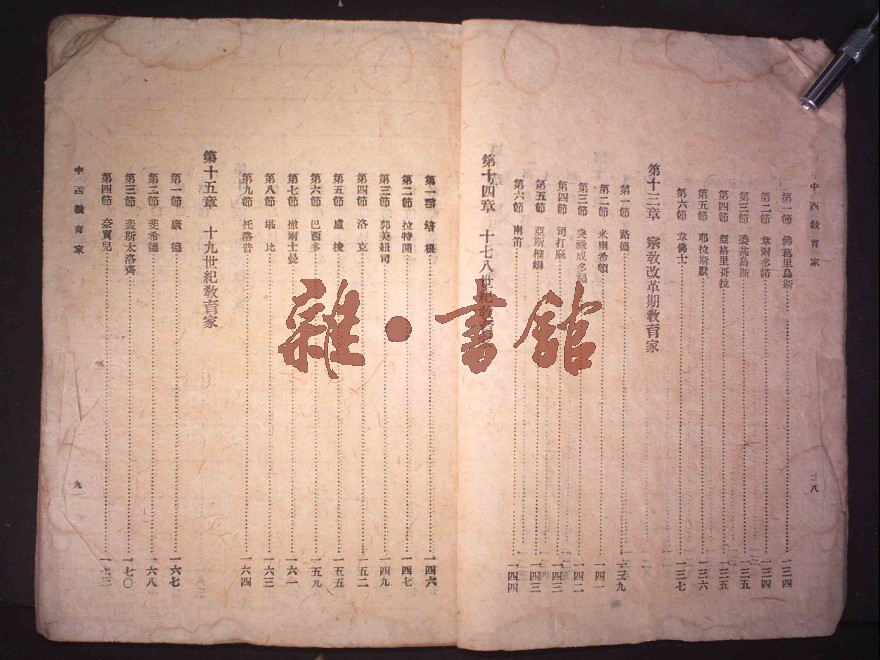 中西教育家
第一節 佛葛里烏斯 一三四
第二節 韋財多諾 一三四
第三節 委其烏斯 一三五
第四節 亞格里哥拉 一三五
第五節 耶拉斯默 一三六
第六節 韋佛士 一三七
第十三章 宗教改革期教育家
第一節 路德 一三九
第二節 米南希頓 一四一
第三節 一四二
第四節 司打麻 一四三
第五節 亞斯 一四三
第六節 南笛 一四四
第十四章 十七八世紀教
八
第一節 培根 一四六
第二節 拉特開 一四七
第三節 郭美紐司 一四九
第四節 洛克 一五二
第五節 盧梭 一五五
第六節 巴西多 一五九
第七節 撒爾士曼 一六一
第八節 堪比 一六三
第九節 托洛普 一六四
第十五章 十九世紀教育家
第一節 康德 一六七
第二節 斐希德 一六八
第三節 裴斯太洛齊 一七〇
第四節 奈賈兒 一七三
中西教育家
九
雜·書館